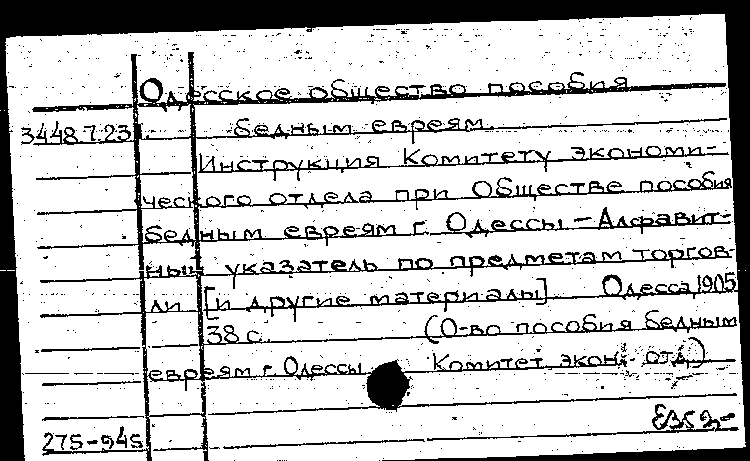 Одесское общество пособия
3448.7.23 бедным евреям.
Инструкция Комитету экономи-
ческого отдела при Обществе пособия
бедным евреям г. Одессы – Алфавит-
ный указатель по предметам торгов-
ли [и другие материалы] Одесса, 1905
38 с. (О-во пособия бедным
евреям г. Одессы Комитет экон. отд.)
275-945